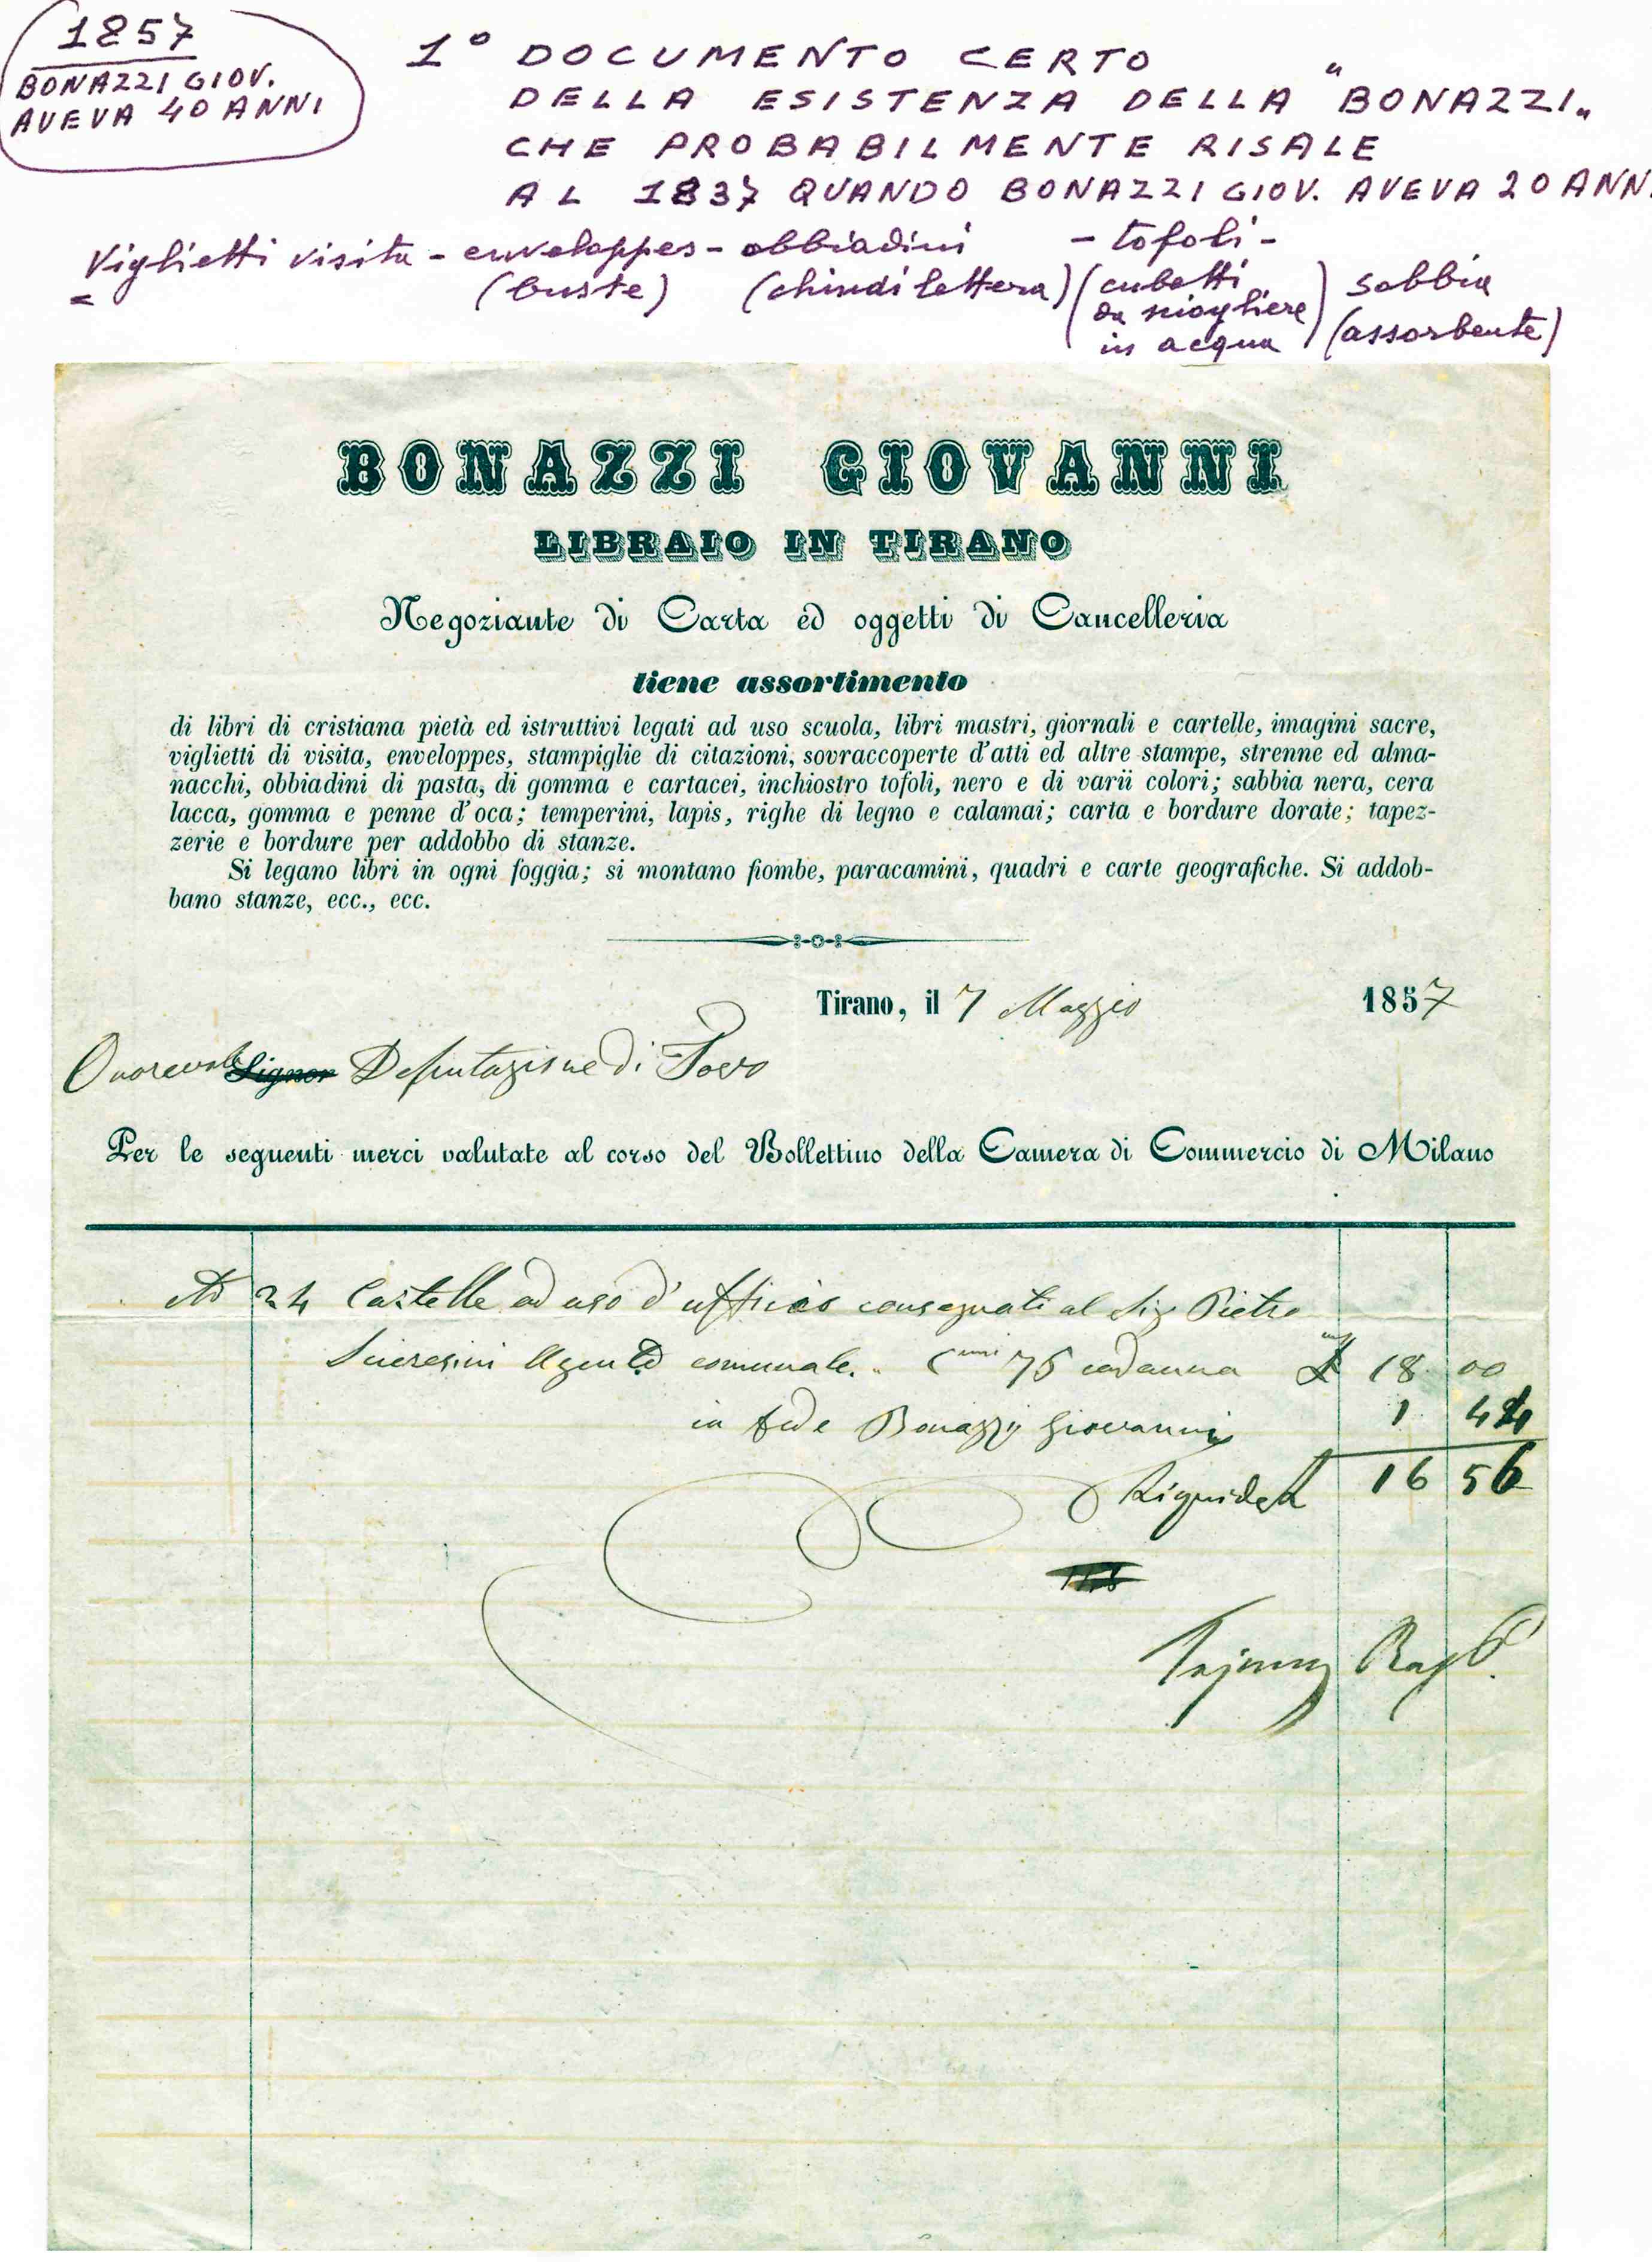 1857
BONAZZI GIOV.
AVEVA 40 ANNI
1° DOCUMENTO CERTO
DELLA ESISTENZA DELLA "BONAZZI„
CHE PROBABILMENTE RISALE
AL 1837 QUANDO BONAZZI GIOV. AVEVA 20 ANN
Viglietti visita - enveloppes - obbiadini - tofoli -
(buste) (chiudi lettera) (cubetti da sciogliere in acqua) sabbia (assorbente)
BONAZZI GIOVANNI
LIBRAIO IN TIRANO
Negoziante di Carta ed oggetti di Cancelleria
tiene assortimento
di libri di cristiana pietà ed istruttivi legati ad uso scuola, libri mastri, giornali e cartelle, imagini sacre,
viglietti di visita, enveloppes, stampiglie di citazioni, sovraccoperte d'atti ed altre stampe, strenne ed alma-
nacchi, obbiadini di pasta, di gomma e cartacei, inchiostro tofoli, nero e di varii colori; sabbia nera, cera
lacca, gomma e penne d'oca; temperini, lapis, righe di legno e calamai; carta e bordure dorate; tapez-
zerie e bordure per addobbo di stanze.
Si legano libri in ogni foggia; si montano fiombe, paracamini, quadri e carte geografiche. Si addob-
bano stanze, ecc., ecc.
Tirano, il 7 Maggio 1857
Onorevole Signor Deputazione di
Per le seguenti merci valutate al corso del Bollettino della Camera di Commercio di Milano
24 Cartelle ad uso d'ufficio consegnati al Sig Pietro
Agente comunale. 75 cadauna 18 00
in fede Bonazzi Giovanni 1 44
16 56